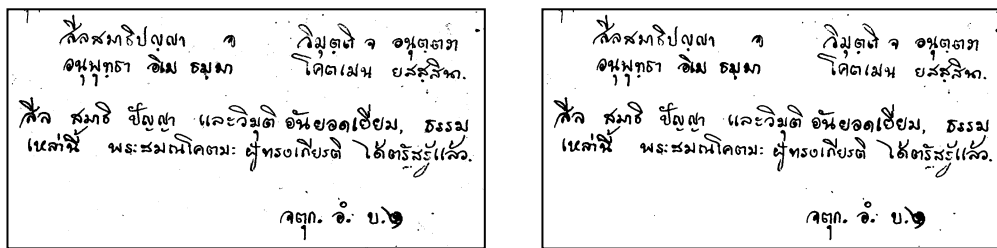 สีลสมาธิปญฺญา จ วิมุตฺติ จ อนุตฺตรา
อนุพุทฺธา อิเม ธมฺมา โคตเมน ยสสฺสินา.
สีล สมาธิ ปัญญา และวิมุติ อันยอดเยี่ยม, ธรรม
เหล่านี้ พระสมณโคตมะ ผู้ทรงเกียรติ ได้ตรัสรู้แล้ว.
จตุก. อํ. บ.
สีลสมาธิปญฺญา จ วิมุตฺติ จ อนุตฺตรา
อนุพุทฺธา อิเม ธมฺมา โคตเมน ยสสฺสินา.
สีล สมาธิ ปัญญา และวิมุติ อันยอดเยี่ยม, ธรรม
เหล่านี้ พระสมณโคตมะ ผู้ทรงเกียรติ ได้ตรัสรู้แล้ว.
จตุก. อํ. บ.